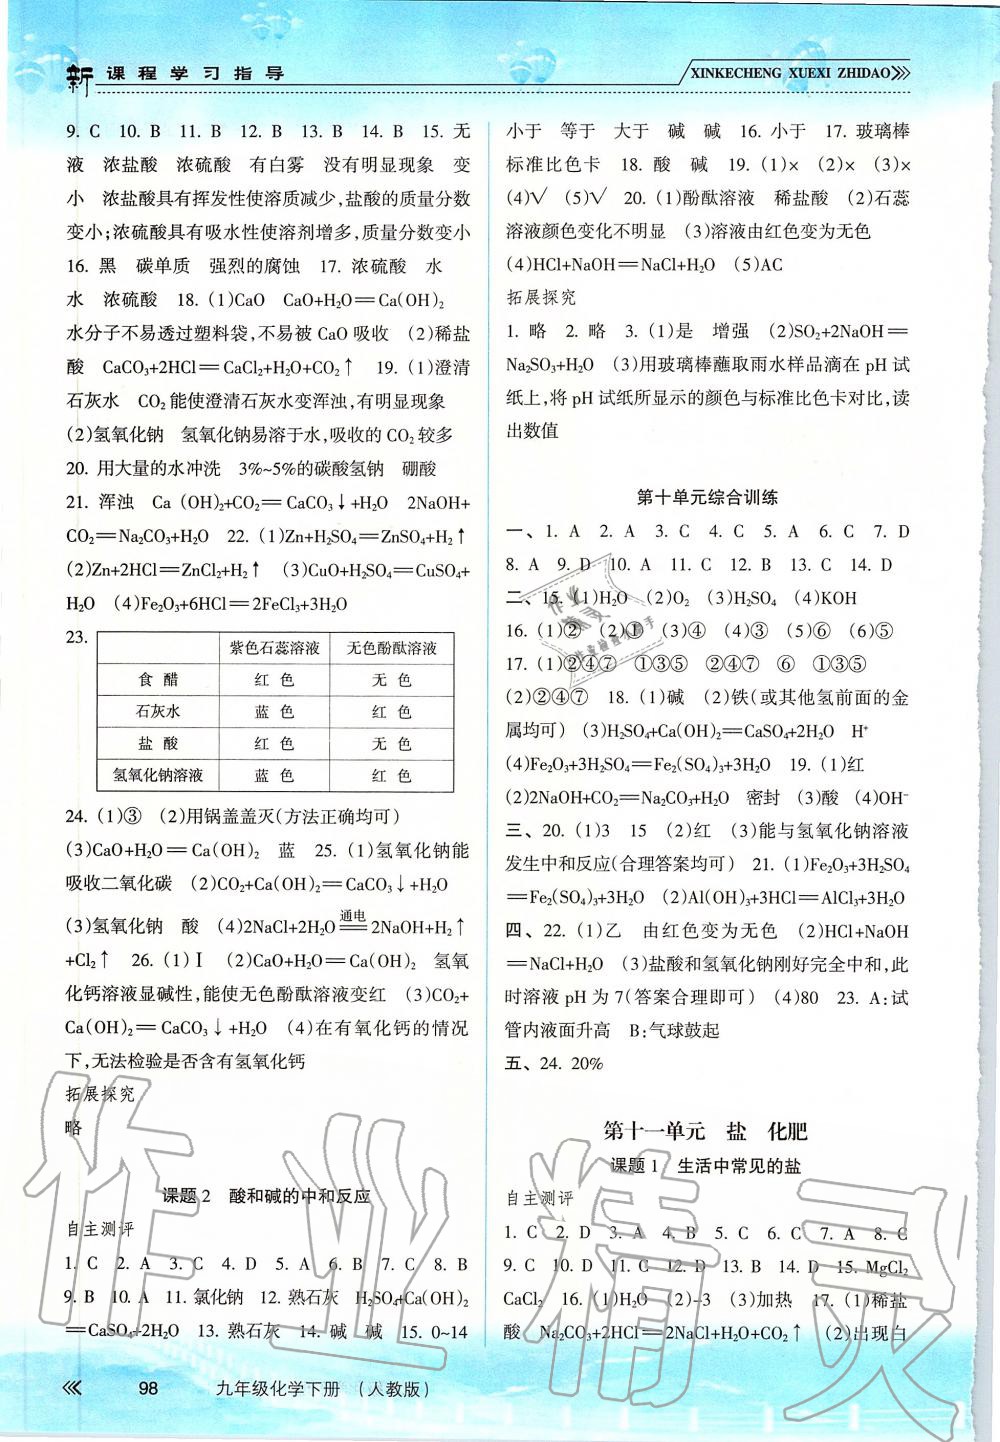 新课程学习指导
XINKECHENG XUEXI ZHIDAO
9. C 10. B 11. B 12. B 13. B 14. B 15. 无
液 浓盐酸 浓硫酸 有白雾 没有明显现象 变
小 浓盐酸具有挥发性使溶质减少,盐酸的质量分数
变小;浓硫酸具有吸水性使溶剂增多,质量分数变小
16. 黑 碳单质 强烈的腐蚀 17. 浓硫酸 水
水 浓硫酸 18. (1)CaO CaO+H₂O=Ca(OH)₂
水分子不易透过塑料袋,不易被 CaO 吸收 (2)稀盐
酸 CaCO₃+2HCl=CaCl₂+H₂O+CO₂↑ 19. (1)澄清
石灰水 CO₂能使澄清石灰水变浑浊,有明显现象
(2)氢氧化钠 氢氧化钠易溶于水,吸收的 CO₂ 较多
20. 用大量的水冲洗 3%~5%的碳酸氢钠 硼酸
21. 浑浊 Ca (OH)₂+CO₂=CaCO₃↓+H₂O 2NaOH+
CO₂=Na₂CO₃+H₂O 22. (1)Zn+H₂SO₄=ZnSO₄+H₂↑
(2)Zn+2HCl=ZnCl₂+H₂↑ (3)CuO+H₂SO₄=CuSO₄+
H₂O (4)Fe₂O₃+6HCl=2FeCl₃+3H₂O
23.
紫色石蕊溶液 无色酚酞溶液
食 醋 红 色 无 色
石灰水 蓝 色 红 色
盐 酸 红 色 无 色
氢氧化钠溶液 蓝 色 红 色
24. (1)③ (2)用锅盖盖灭(方法正确均可)
(3)CaO+H₂O=Ca(OH)₂ 蓝 25. (1)氢氧化钠能
吸收二氧化碳 (2)CO₂+Ca(OH)₂=CaCO₃↓+H₂O
(3)氢氧化钠 酸 (4)2NaCl+2H₂O 通电 2NaOH+H₂↑
+Cl₂↑ 26. (1)Ⅰ (2)CaO+H₂O=Ca(OH)₂ 氢氧
化钙溶液显碱性,能使无色酚酞溶液变红 (3)CO₂+
Ca(OH)₂=CaCO₃↓+H₂O (4)在有氧化钙的情况
下,无法检验是否含有氢氧化钙
拓展探究
略
课题 2 酸和碱的中和反应
自主测评
1. C 2. A 3. C 4. D 5. A 6. B 7. C 8. B
9. B 10. A 11. 氯化钠 12. 熟石灰 H₂SO₄+Ca(OH)₂
=CaSO₄+2H₂O 13. 熟石灰 14. 碱 碱 15. 0~14
小于 等于 大于 碱 碱 16. 小于 17. 玻璃棒
标准比色卡 18. 酸 碱 19. (1)× (2)× (3)×
(4)√ (5)√ 20. (1)酚酞溶液 稀盐酸 (2)石蕊
溶液颜色变化不明显 (3)溶液由红色变为无色
(4)HCl+NaOH=NaCl+H₂O (5)AC
拓展探究
1. 略 2. 略 3. (1)是 增强 (2)SO₂+2NaOH=
Na₂SO₃+H₂O (3)用玻璃棒蘸取雨水样品滴在 pH 试
纸上,将 pH 试纸所显示的颜色与标准比色卡对比,读
出数值
第十单元综合训练
一、1. A 2. A 3. C 4. C 5. A 6. C 7. D
8. A 9. D 10. A 11. C 12. B 13. C 14. D
二、15. (1)H₂O (2)O₂ (3)H₂SO₄ (4)KOH
16. (1)② (2)① (3)④ (4)③ (5)⑥ (6)⑤
17. (1)②④⑦ ①③⑤ ②④⑦ ⑥ ①③⑤
(2)②④⑦ 18. (1)碱 (2)铁(或其他氢前面的金
属均可) (3)H₂SO₄+Ca(OH)₂=CaSO₄+2H₂O H⁺
(4)Fe₂O₃+3H₂SO₄=Fe₂(SO₄)₃+3H₂O 19. (1)红
(2)2NaOH+CO₂=Na₂CO₃+H₂O 密封 (3)酸 (4)OH⁻
三、20. (1)3 15 (2)红 (3)能与氢氧化钠溶液
发生中和反应(合理答案均可) 21. (1)Fe₂O₃+3H₂SO₄
=Fe₂(SO₄)₃+3H₂O (2)Al(OH)₃+3HCl=AlCl₃+3H₂O
四、22. (1)乙 由红色变为无色 (2)HCl+NaOH
=NaCl+H₂O (3)盐酸和氢氧化钠刚好完全中和,此
时溶液 pH 为 7(答案合理即可) (4)80 23. A:试
管内液面升高 B:气球鼓起
五、24. 20%
第十一单元 盐 化肥
课题 1 生活中常见的盐
自主测评
1. C 2. D 3. A 4. B 5. C 6. C 7. A 8. C
9. C 10. D 11. C 12. D 13. B 14. D 15. MgCl₂
CaCl₂ 16. (1)H₂O (2)-3 (3)加热 17. (1)稀盐
酸 Na₂CO₃+2HCl=2NaCl+H₂O+CO₂↑ (2)出现白
98 九年级化学下册 (人教版)
作业精灵